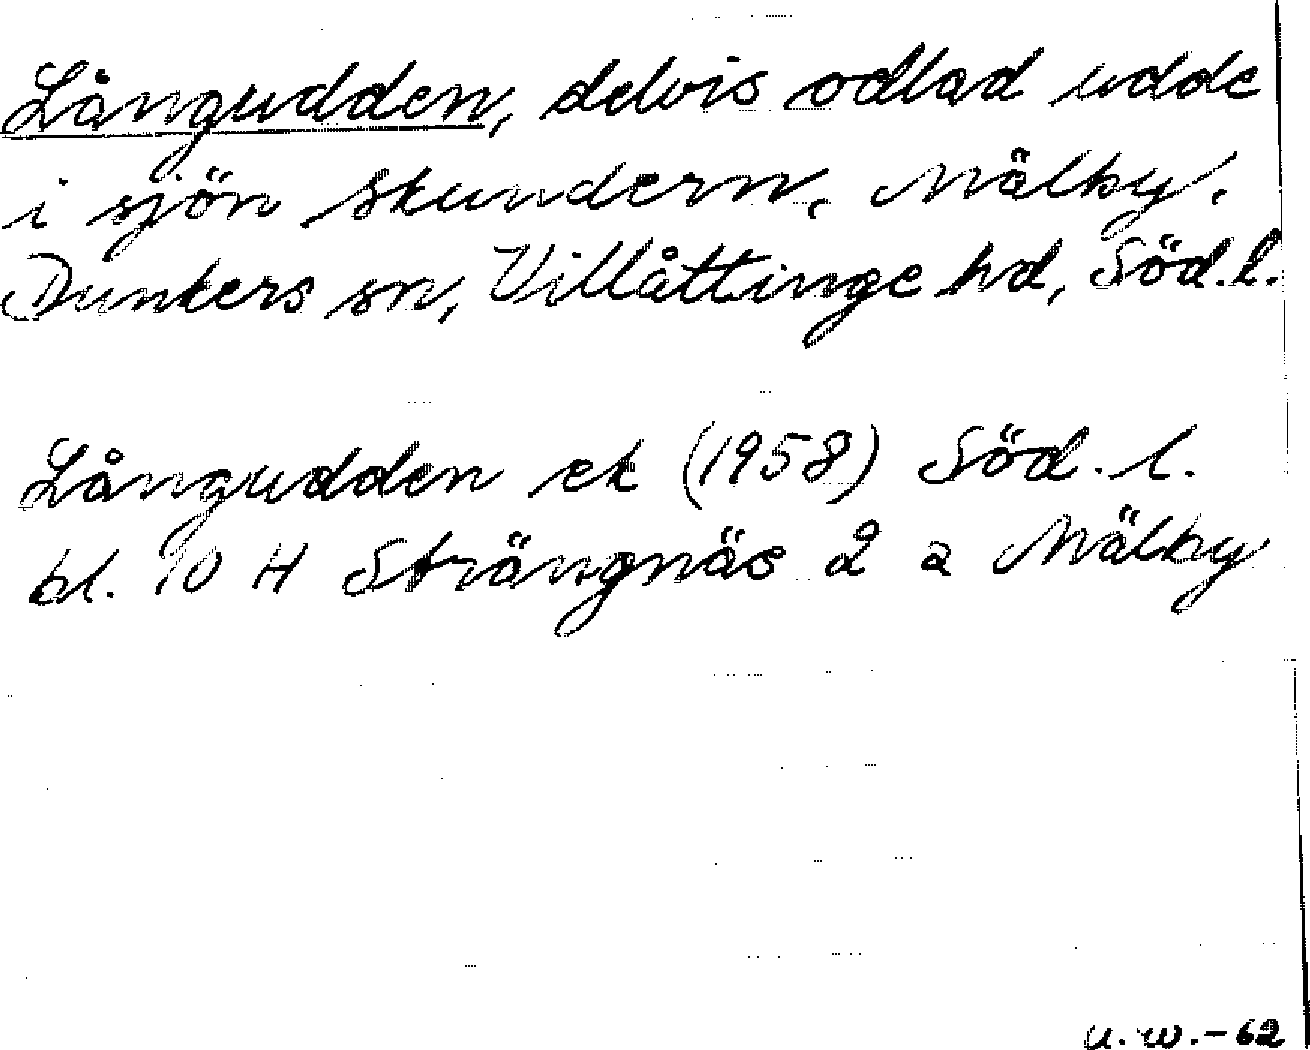 Långudden, delvis odlad udde
i sjön Skundern, Mälby,
Dunkers sn, Villåttinge hd, Söd. l.
Långudden ek (1958) Söd. l.
bl. 10 H Strängnäs 2 a Mälby
U. W. - 62